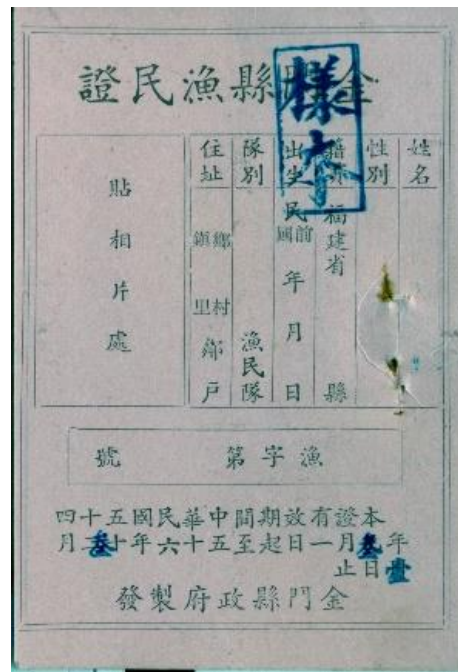 金門縣漁民證
樣本
姓名
性別
籍貫 福建省 縣
出生 民國前 年 月 日
隊別 漁民隊
住址 鄉鎮 村里 鄰 戶
貼相片處
漁字第 號
本證有效期間中華民國五十四
年叁月一日起至五十六年十二月
壹日止
金門縣政府製發